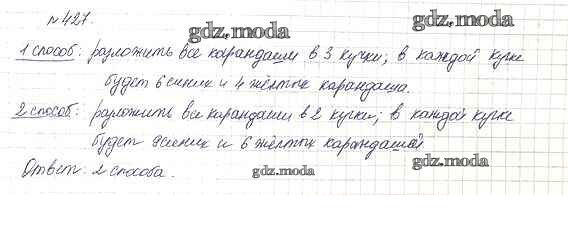 №427.
gdz.moda
gdz.moda
1 способ: разложить все карандаши в 3 кучки; в каждой кучке
будет 6 синих и 4 жёлтых карандаша.
2 способ: разложить все карандаши в 2 кучки; в каждой кучке
будет 9 синих и 6 жёлтых карандашей
gdz.moda
Ответ: 2 способа.
gdz.moda